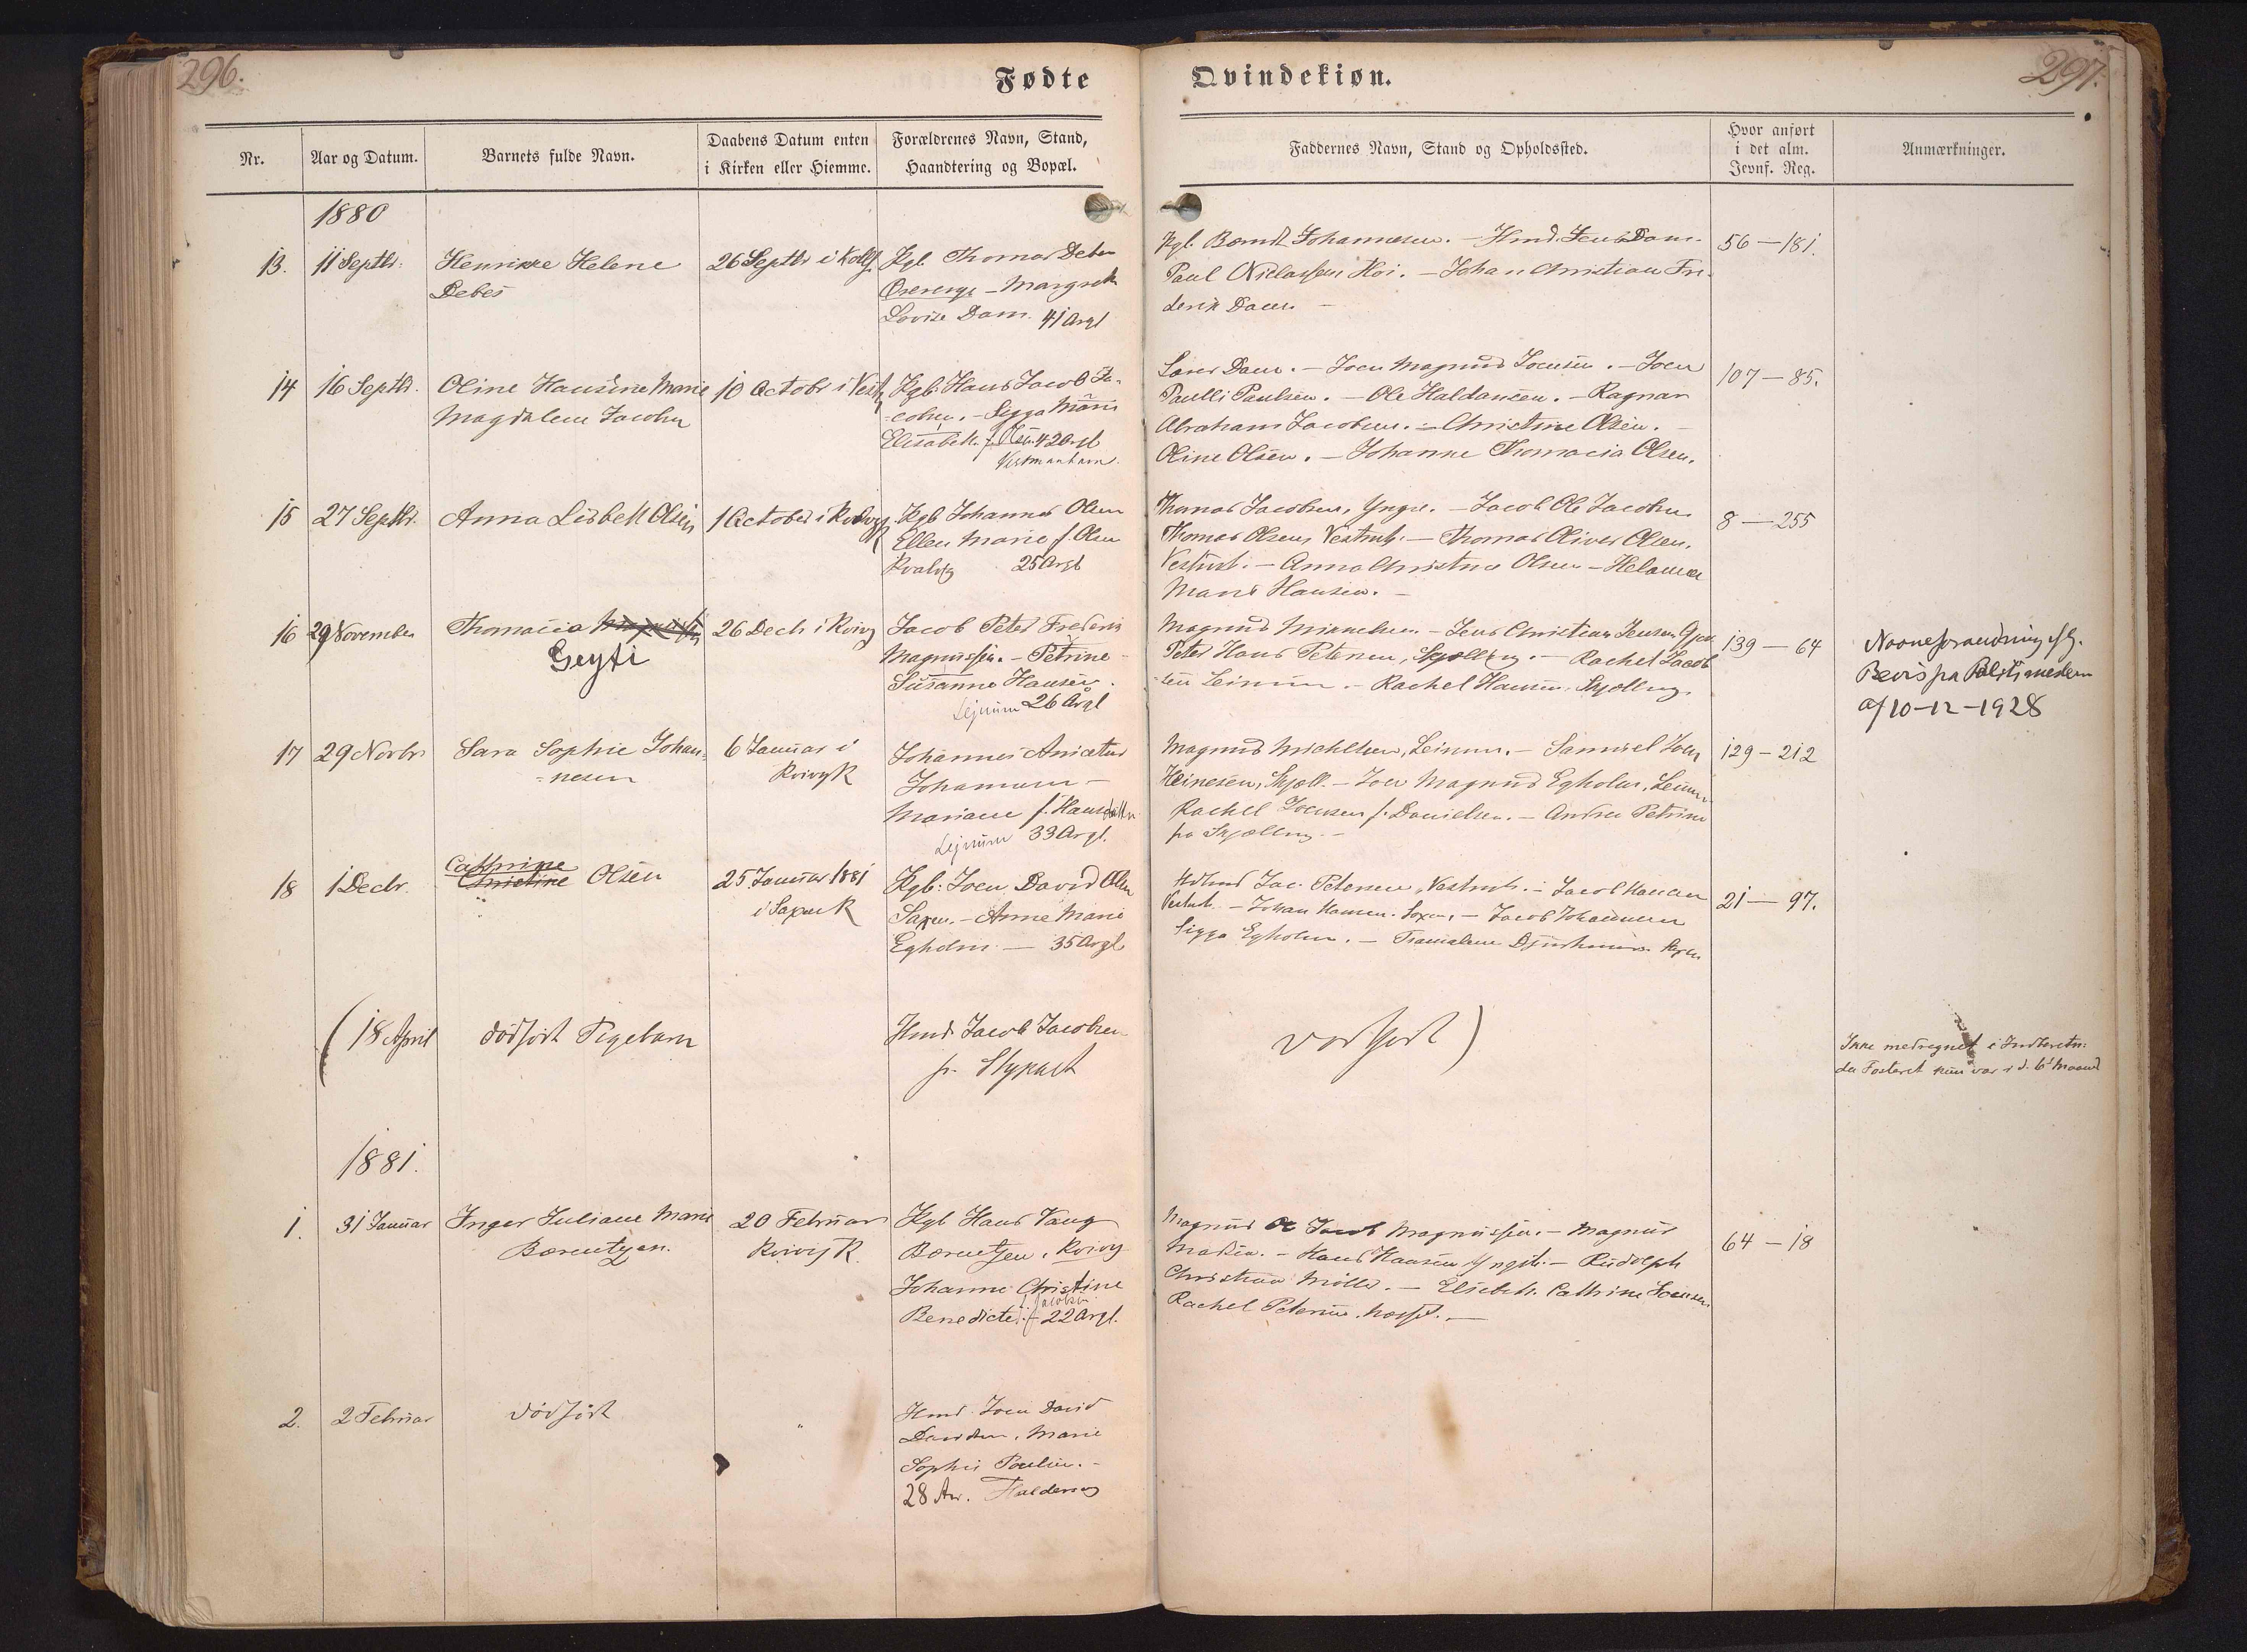 296.
Fødte
Qvindekiøn.
297.
Nr.
Aar og Datum.
Barnets fulde Navn.
Daabens Datum enten
i Kirken eller Hiemme.
Forældrenes Navn, Stand,
Haandtering og Bopæl.
Faddernes Navn, Stand og Opholdssted.
Hvor anført
i det alm.
Jevnf. Reg.
Anmærkninger.
1880
13.
11 Septbr.
Henrikke Helene
Debes
26 Septbr i Kollf.
Kgb. Thomas Debes
Margreth
Lovise Dam. 41 Argl
Kgb. Johannesen. - Hmd. Jens Dam.
Paul Niclassen Hoi. - Johan Christian Fre-
derik Dam. -
56 - 181.
14
16 Septbr.
Oline Hansine Marie
Magdalene Jacobsen
10 Octobr i Vestm
Kgb. Hans Jacob Ja-
cobsen. - Sigga Marie
Elisabeth f. Olsen 42 Argl
Vestmanhavn.
Dam. - Joen Magnus Joensen. - Joen
Poulli Paulsen. - Ole Haldansen. - Ragnar
Abraham Jacobsen. - Christine Olsen. -
Oline Olsen. - Johanne Thomacia Olsen.
107 - 85.
15
27 Septbr.
Anna Lisbeth Olsen
1 October i
Kgb Johannes Olsen
Ellen Marie f. Olsen
Kvalvig 25 Argl
Thomas Jacobsen, Yngre. - Jacob Ole Jacobsen
Thomas Olsen, Vestmh. - Thomas Oliver Olsen,
Vestmh. - Anna Christine Olsen -
Marie Hansen. -
8 - 255
16
29 November
Thomacia
Geyti
26 Decbr i Kvivig
Jacob Peter Frederik
Magnussen. - Petrine
Susanne Hansen.
Lejnum 26 Argl
Magnus - Jens Christian Jensen
Peter Hans Petersen, Skjelling. - Rachel Jacob-
sen Leinum. - Rachel Hansen, Skjelling.
139 - 64
Navneforandring iflg.
Bevis fra Politimesteren
af 10-12-1928
17
29 Novbr
Sara Sophie Johan-
nesen
6 Januar i
Kvivig K
Johannes Anicetus
Johannesen -
Mariane f. Hansdatter
Lejnum 33 Argl.
Magnus Michelsen, Leinum. - Samuel Joen
Heinesen, Skjell. - Joen Magnus Egholm, Leinum
Rachel Joensen f. Danielsen. - Andrea Petrine
fra Skjelling. -
129 - 212
18
1 Decbr.
Cathrine
Christine Olsen
25 Januar 1881
i Saxen K
Kgb. Joen David Olsen
Saxen. - Anne Marie
Egholm - 35 Argl
Jac. Petersen, Vestmh. - Jacob Hansen
Vestmh. - Johan Hansen. Saxen. - Jacob Johannesen
Sigga Egholm. -
21 - 97.
(18 April
dødfødt Pigebarn
Hmd. Jacob Jacobsen
)
Ikke medregnet i Indberetn.
da Fosteret kun var i d. 6te Maaned
1881.
1.
31 Januar
Inger Juliane Marie
Bærentzen.
20 Februar
Kvivig K.
Kgb Hans Vang
Bærentzen, Kvivig
Johanne Christine
Benedicte f. Jacobsen
22 Argl.
Magnus Ole Jacob Magnussen. - Magnus
Madsen. - Hans Hansen Yngst. - Rudolph
Christian Møller. - Elsebeth Cathrine Joensen
Rachel Petersen
64 - 18
2.
2 Februar
dødfødt
Hmd. Joen David
Davidsen, Marie
Sophie Poulsen. -
28 Aar. Haldersvig